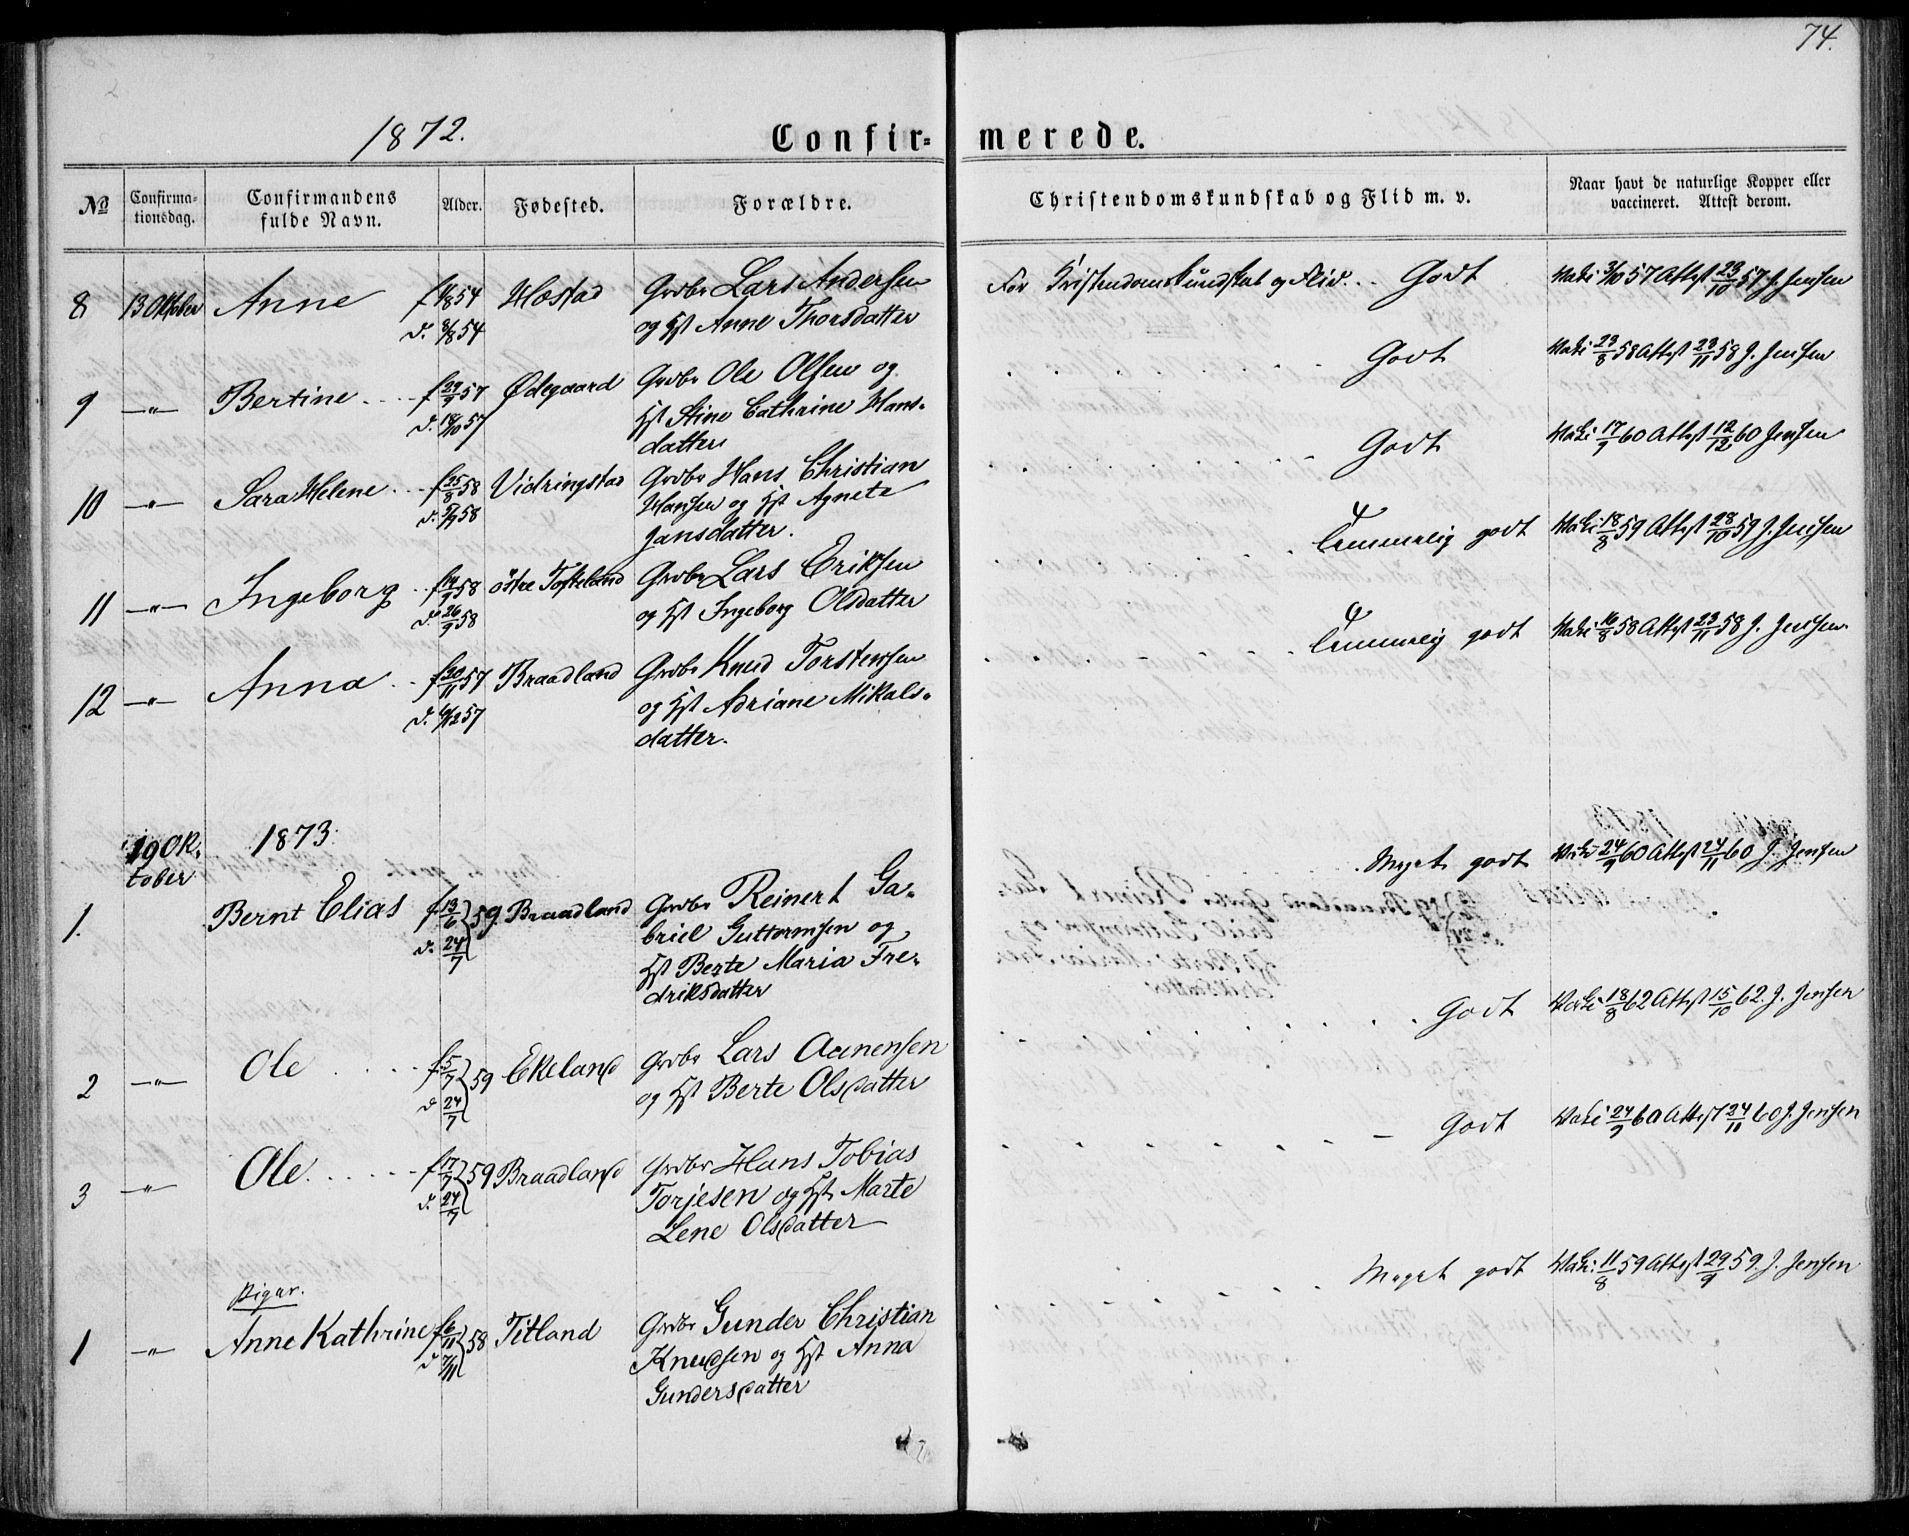 74.
1872.
Confir= merede.
No
Confirma-
tionsdag.
Confirmandens
fulde Navn.
Alder.
Fødested.
Forældre.
Christendomskundskab og Flid m. v.
Naar havt de naturlige Kopper eller
vaccineret. Attest derom.
8 13 Oktober Anne f 54 Høstad Grdbr Lars Andersen For Kristendomskundskab og Flid. Godt Vaksi 3/10 57 Attest 23/10 57 J. Jensen
d. 8/8 54 og Hst Anne Thorsdatter
9 —"— Bertine f 29/9 57 Ødegaard Grdbr Ole Olsen og Godt Vaksi 29/8 58 Attest 23/11 58 J. Jensen
d. 18/10 57 Hst Stine Cathrine Hans-
datter
10 —"— Sara Helene f 25/8 58 Vidringstad Grdbr Hans Christian Godt Vaksi 17/9 60 Attest 12/12 60 Jensen
d. 5/9 58 Hansen og Hst Agnete
Jansdatter.
11 —"— Ingeborg f 14/9 58 östre Tofteland Grdbr Lars Eriksen Temmelig godt Vaksi 18/8 59 Attest 28/10 59 J. Jensen
d. 26/9 58 og Hst Ingeborg Olsdatter
12 —"— Anna f 20/11 57 Braadland Grdbr Knud Torstensen Temmelig godt Vaksi 16/8 58 Attest 23/11 58 J. Jensen.
d. 57 og Hst Adriane Mikals-
datter.
19 Ok-
tober
1873.
1. Bernt Elias f. 13/6 59. Braadland Grdbr Reinert Ga- Meget godt Vaksi 24/9 60 Attest 24/11 60 J. Jensen
d. 24/7 briel Guttormsen og
Hst Berte Maria Fre-
driksdatter
2 —"— Ole f. 5/7 59 Ekeland Grdbr Lars Aanensen Godt Vaksi 18/8 62 Attest 15/10 62. J. Jensen
d 24/7 og Hst Berte Olsdatter
3 —"— Ole f. 17/7 59 Braadland Grdbr Hans Tobias Godt Vaksi 24/9 60 Attest 24/11 60 J. Jensen
d. 24/7 Torjesen og Hst Marte
Lene Olsdatter
Pigar.
1 —"— Anne Kathrine f 6/11 58 Titland Grdbr Gunder Christian Meget godt Vaksi. 11/8 59 Attest 29/9 59. J. Jensen
d 7/11 Knudsen og Hst Anna
Gundersdatter